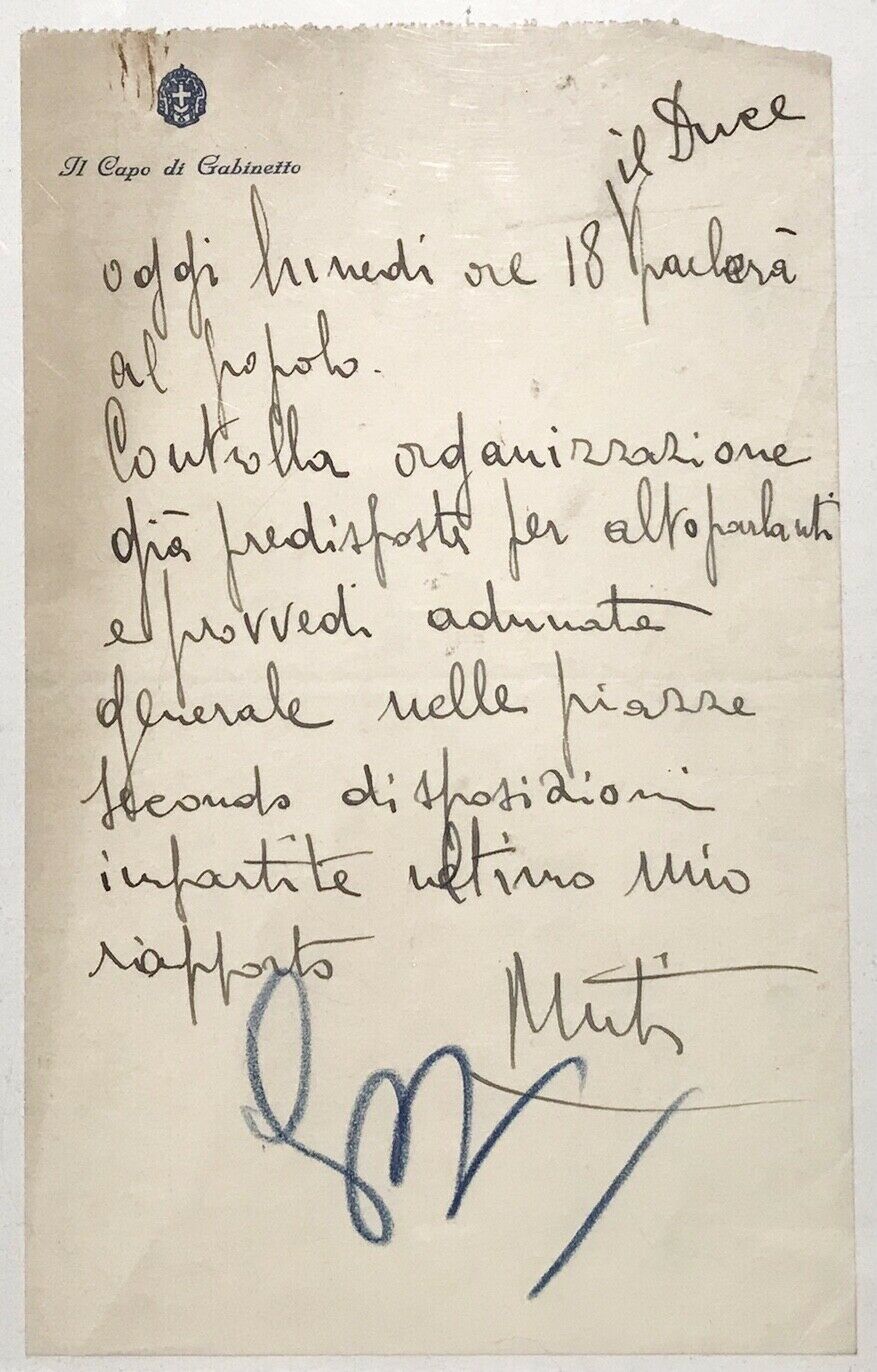 Il Capo di Gabinetto
il Duce
oggi lunedì ore 18 parlerà
al popolo.
Controlla organizzazione
già predisposta per altoparlanti
e provvedi adunata
generale nelle piazze
secondo disposizioni
impartite ultimo mio
rapporto
Muti